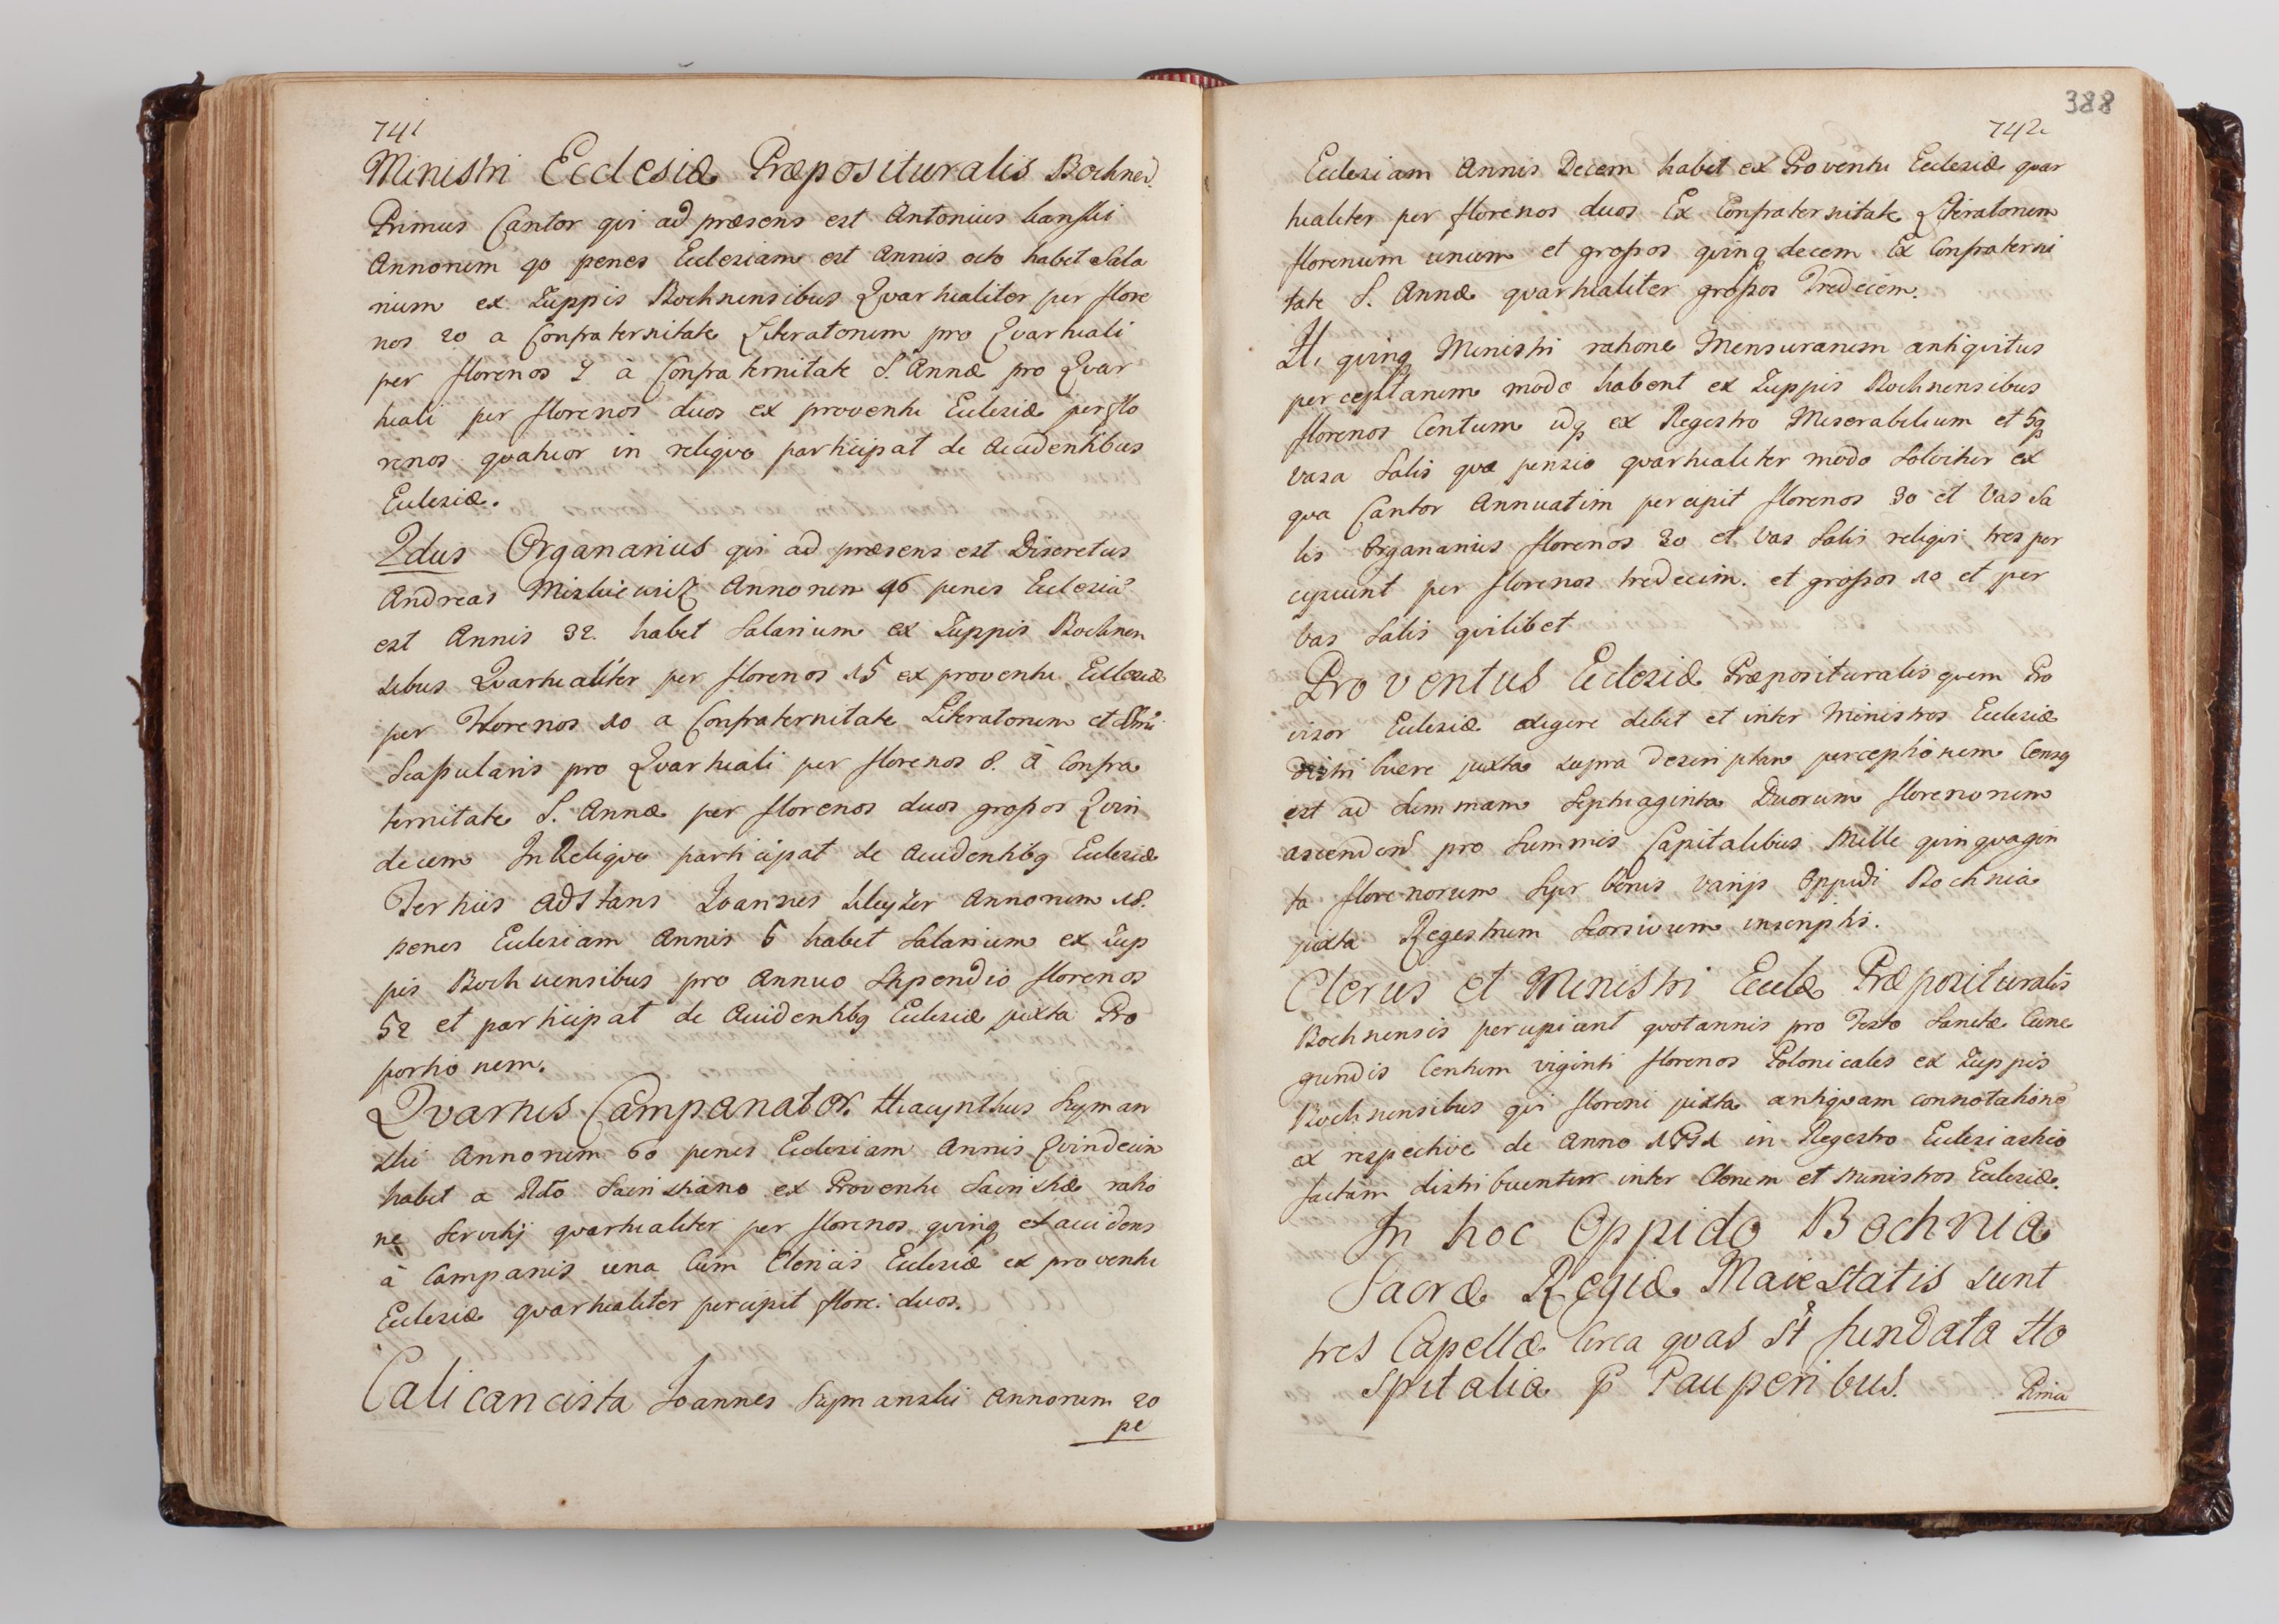 741
Ministri Ecclesiæ Præposituralis Bochnen.
Primus Cantor qui ad præsens est Antonius
Annorum 40 penes Ecclesiam est Annis octo habet Sala
rium ex Zuppis Bochnensibus Quartualiter per flore
nos 20 a Confraternitate Literatorum pro Quartuali
per florenos 9 à Confraternitate S. Annæ pro Quar
tuali per florenos duos ex proventu Ecclesiæ per flo
renos quatuor in reliquo participat de Accidentibus
Ecclesiæ.
2dus Organarius qui ad præsens est Discretus
Andreas Annorum 46 penes Ecclesiã
est Annis 32. habet Salarium ex Zuppis Bochnen
sibus Quartualiter per florenos 15 ex proventu Ecclesiæ
per Florenos 10 a Confraternitate Literatorum et
Scapularis pro Quartuali per florenos 8. à Confra
ternitate S. Annæ per florenos duos grossos Quin
decem In Reliquo participat de Accidentibq Ecclesiæ
Tertius adstans Joannes Annorum 18.
penes Ecclesiam Annis 6 habet Salarium ex Zup
pis Bochnensibus pro Annuo Stipendio florenos
52 et participat de Accidentibq Ecclesiæ juxta Pro
portionem.
Quartus Campanator Hiacynthus Szyman
ski Annorum 60 penes Ecclesiam Annis Quindecim
habet a Rdo Sacristiano ex Proventu Sacristiæ ratio
ne Servitij quartualiter per florenos quinq et accidens
à Campanis una Cum Clericis Ecclesiæ ex proventu
Ecclesiæ quartualiter percipit flore: duos.
Calicancista Joannes Szymanski Annorum 20
pe
388
742
Ecclesiam Annis Decem habet ex Proventu Ecclesiæ quar
tualiter per florenos duos Ex Confraternitate Literatorum
florenum unum et grossos quinqdecem Ex Confraterni
tate S. Annæ quartualiter grossos Tredecem.
Hi quinq Ministri ratione Mensurarum antiquitus
perceptarum modo habent ex Zuppis Bochnensibus
florenos Centum idq ex Regestro Miserabilium et 5q
vasa Salis quæ pensio quartualiter modo Solvitur ex
qua Cantor Annuatim percipit florenos 30 et Vas Sa
lis Organarius florenos 30 et Vas Salis reliqui tres per
cipiunt per florenos tredecim. et grossos 10 et per
Vas Salis quilibet
Proventus Ecclesiæ Præposituralis quem Pro
visor Ecclesiæ exigere debet et inter Ministros Ecclesiæ
distribuere juxta supra descriptam perceptionem Censq
est ad Summam Septuaginta Duorum florenorum
ascendens pro Summis Capitalibus Mille quinquagin
ta florenorum Supr bonis varijs Oppidi Bochnia
juxta Regestrum Seorsivum inscriptis.
Clerus et Ministri Eccl͠æ Præposituralis
Bochnensis percipiunt quotannis pro Festo Sanctæ Cune
gundis Centum viginti florenos Polonicales ex Zuppis
Bochnensibus qui floreni juxta antiquam connotationē
ex respective de Anno in Regestro Ecclesiastico
factam distribuuntur inter Clerum et Ministros Ecclesiæ.
In hoc Oppido Bochnia
Sacræ Regiæ Maiestatis sunt
tres Capellæ Circa quas st fundata Ho
spitalia p Pauperibus.
Prima